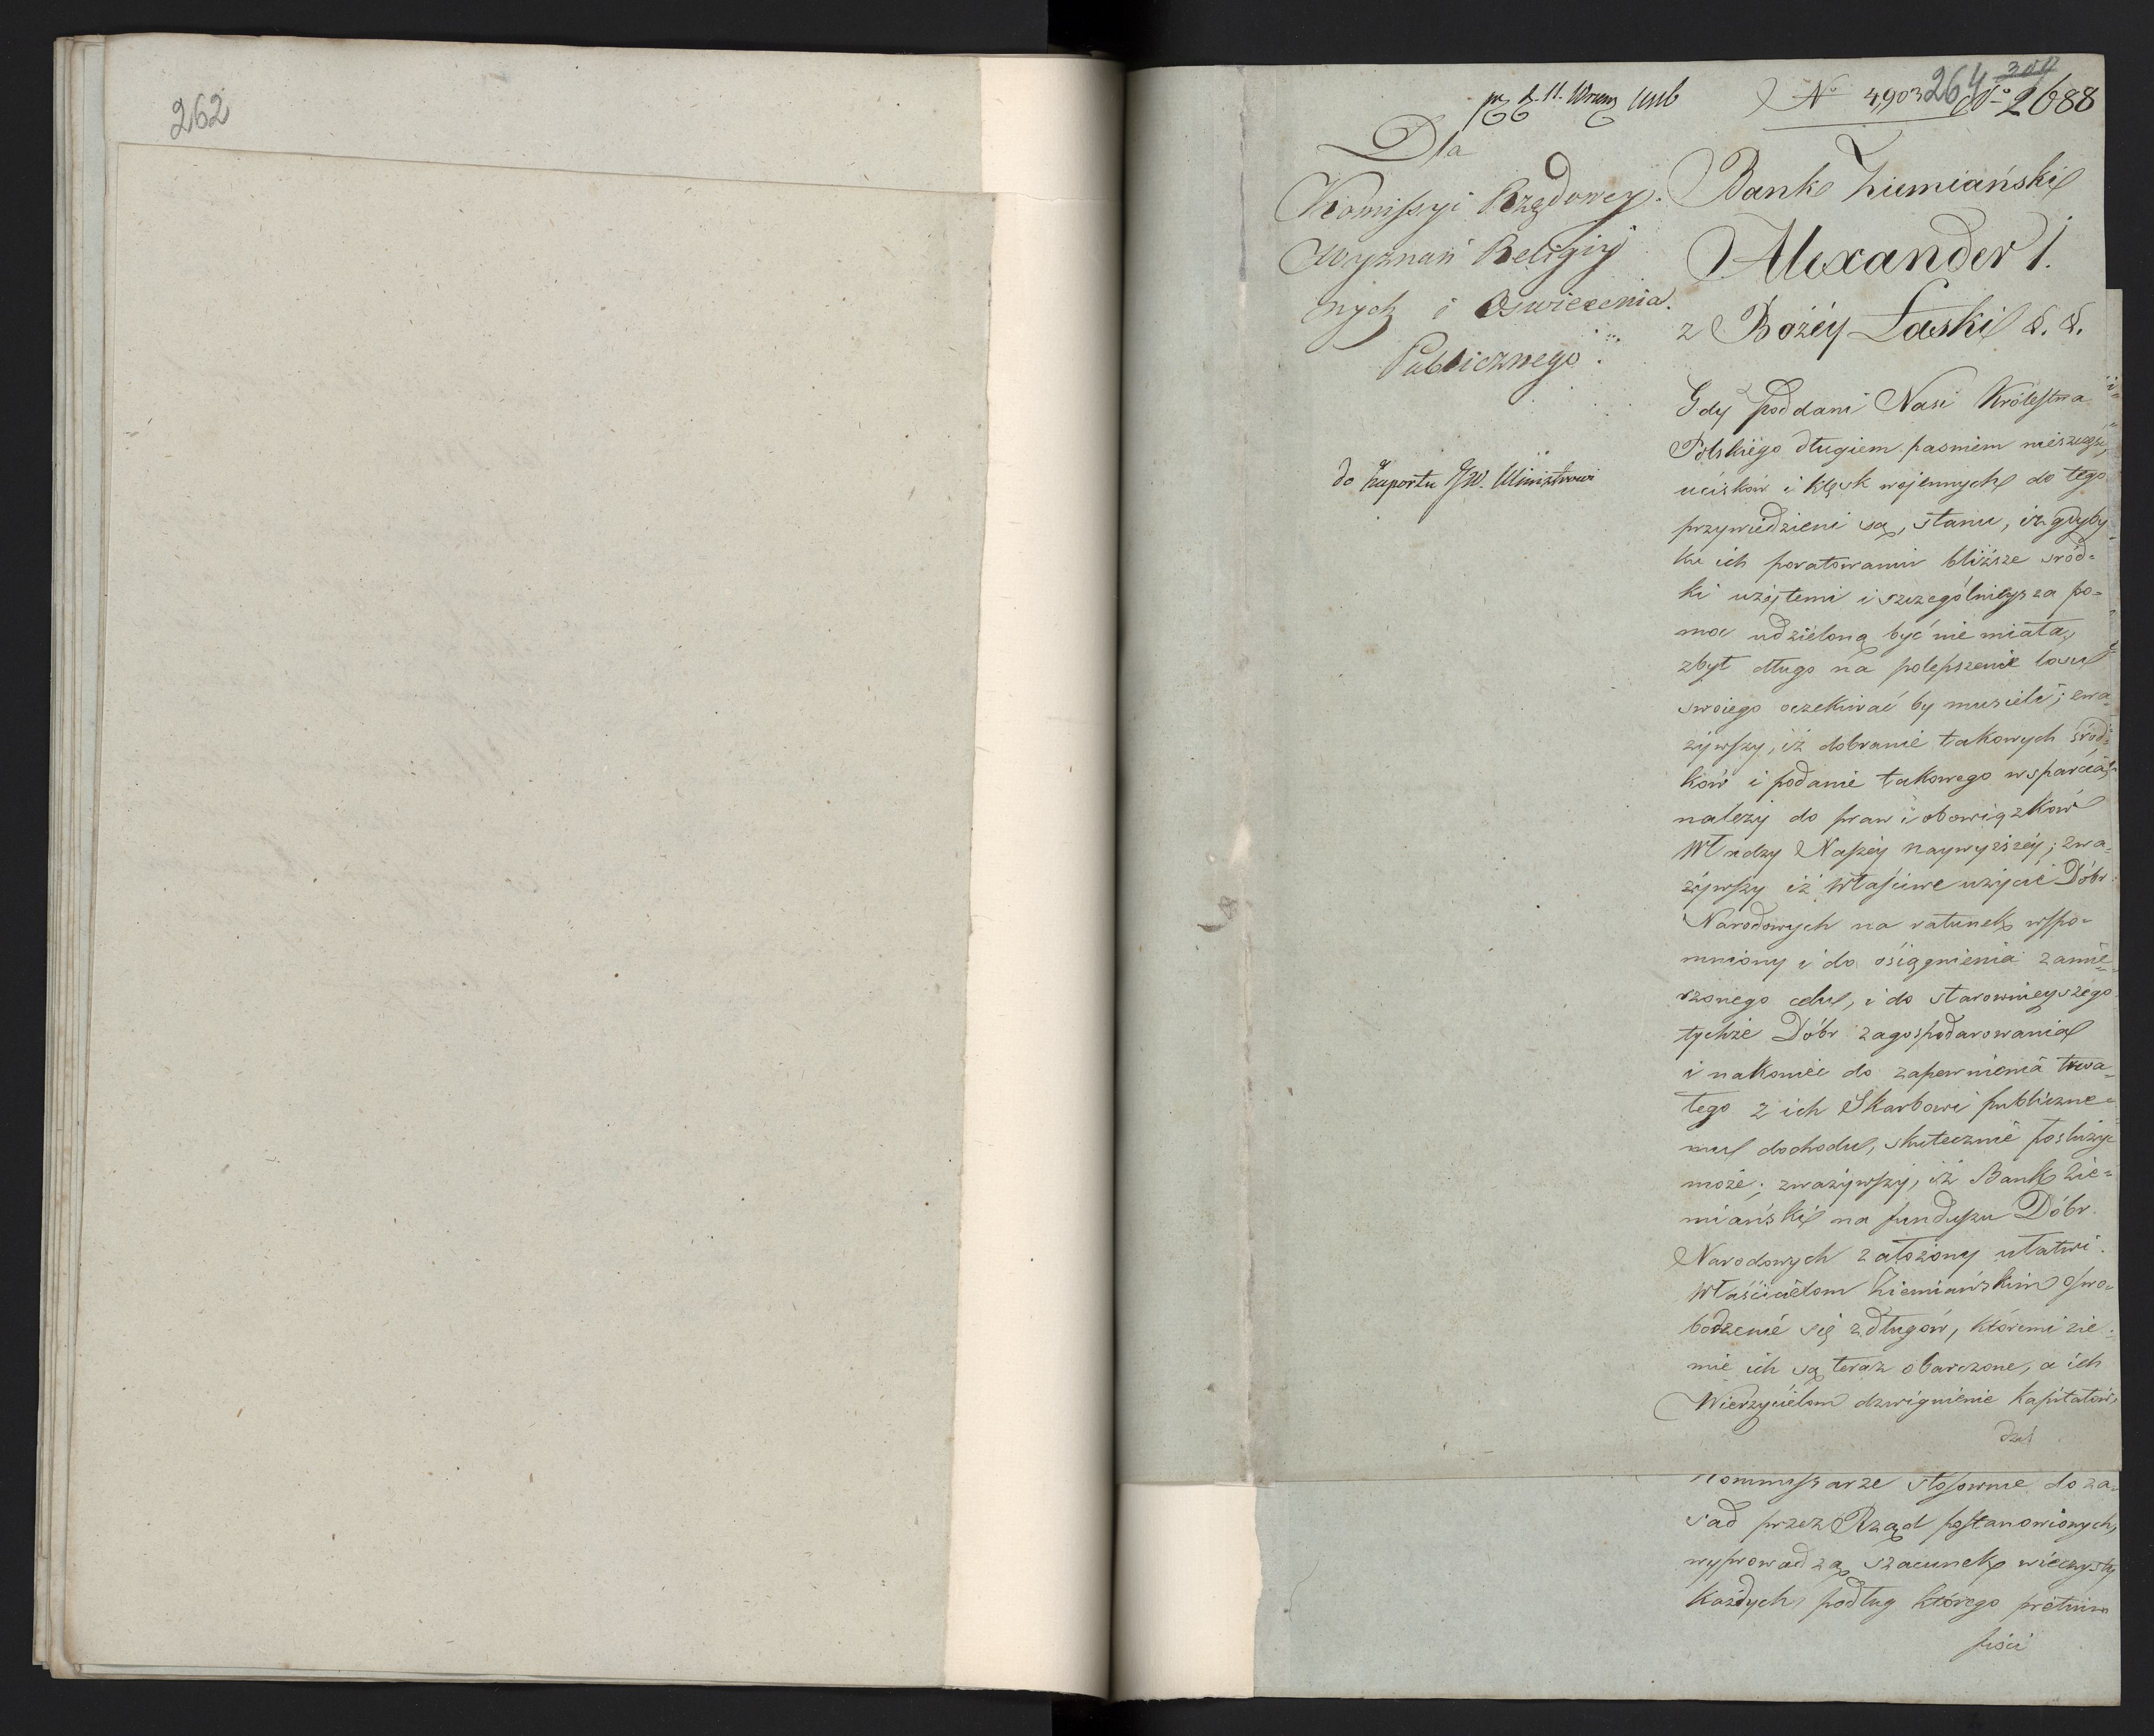 262
N<sup>o</sup> 4903
264
N<sup>o</sup> 2688
Dla
Komissyi Rządowey.
Wyznań Religiy
nych i Oswiecenia.
Publicznego.
do Raportu JW. Ministrowi
Bank Ziemiański
Alexander I.
z Bożéy Łaski &. &.
Gdy poddani Nasi Królestwa
Polskiego długiem pasmem nieszczęść,
ucisków i klęsk wojennych do tego
przywiedzieni są, stanu, iż gdyby
ku ich poratowaniu bliższe śród-
ki użytemi i szczególnieysza po-
moc udzieloną być nie miała,
zbyt długo na polepszenie losu
swoiego oczekiwać by musieli; zwa-
żywszy, iż dobranie takowych śród-
ków i podanie takowego wsparcia,
należy do praw i obowiązków
Władzy Naszéy naywyższéy; zwa-
żywszy iż właściwe użycie Dóbr
Narodowych na ratunek wspo-
mniony i do osiągnienia zamie-
rzonego celu, i do starownieyszego
tychże Dóbr zagospodarowania
i nakoniec do zapewnienia trwa-
łego z ich Skarbowi publiczne-
mu dochodu, skutecznie posłużyć
może; zważywszy, iż Bank Zie-
miański na funduszu Dóbr
Narodowych założony ułatwi
Właścicielom Ziemiańskim oswo-
bodzenie się z długów, któremi zie-
mie ich są teraz obarczone, a ich
Wierzycielom dzwignienie kapitałów,
dziś
Kommissarze stosownie do za-
sad przez Rząd postanowionych,
wyprowadzą szacunek wieczysty
każdych podług którego pretium
fisci